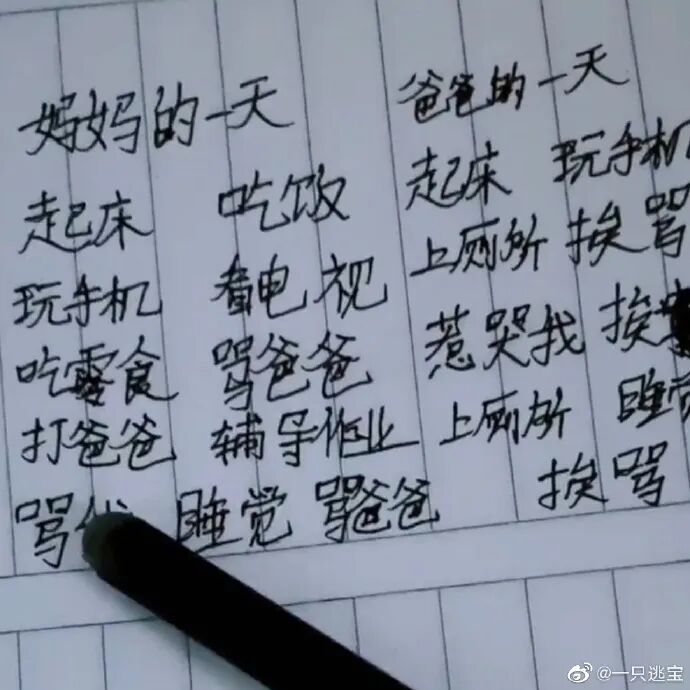 妈妈的一天
起床 吃饭
玩手机 看电视
吃零食 骂爸爸
打爸爸 辅导作业
骂 睡觉 骂爸爸
爸爸的一天
起床 玩手机
上厕所 挨骂
惹哭我 挨
上厕所 睡觉
挨骂
@一只逃宝